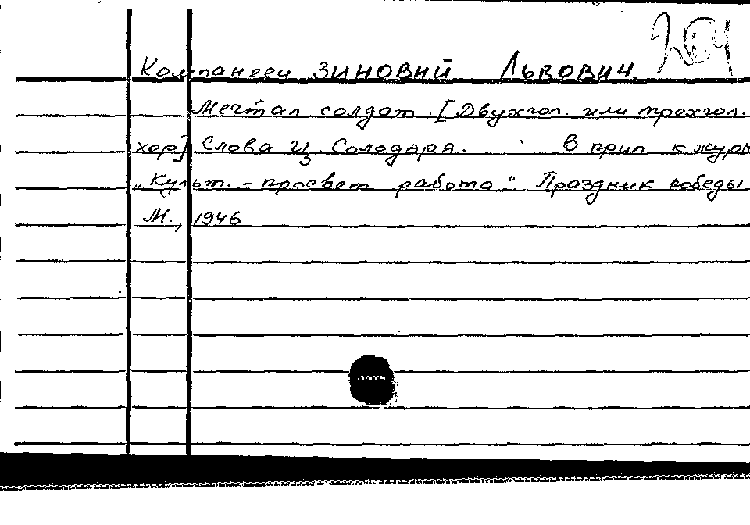 Компанеец ЗИНОВИЙ Львович.
Мечтал солдат. [Двухгол. или трехгол.
хор] Слова Ц. Солодаря. В прил к журн
"Культ.-просвет работа". Праздник победы
М., 1946